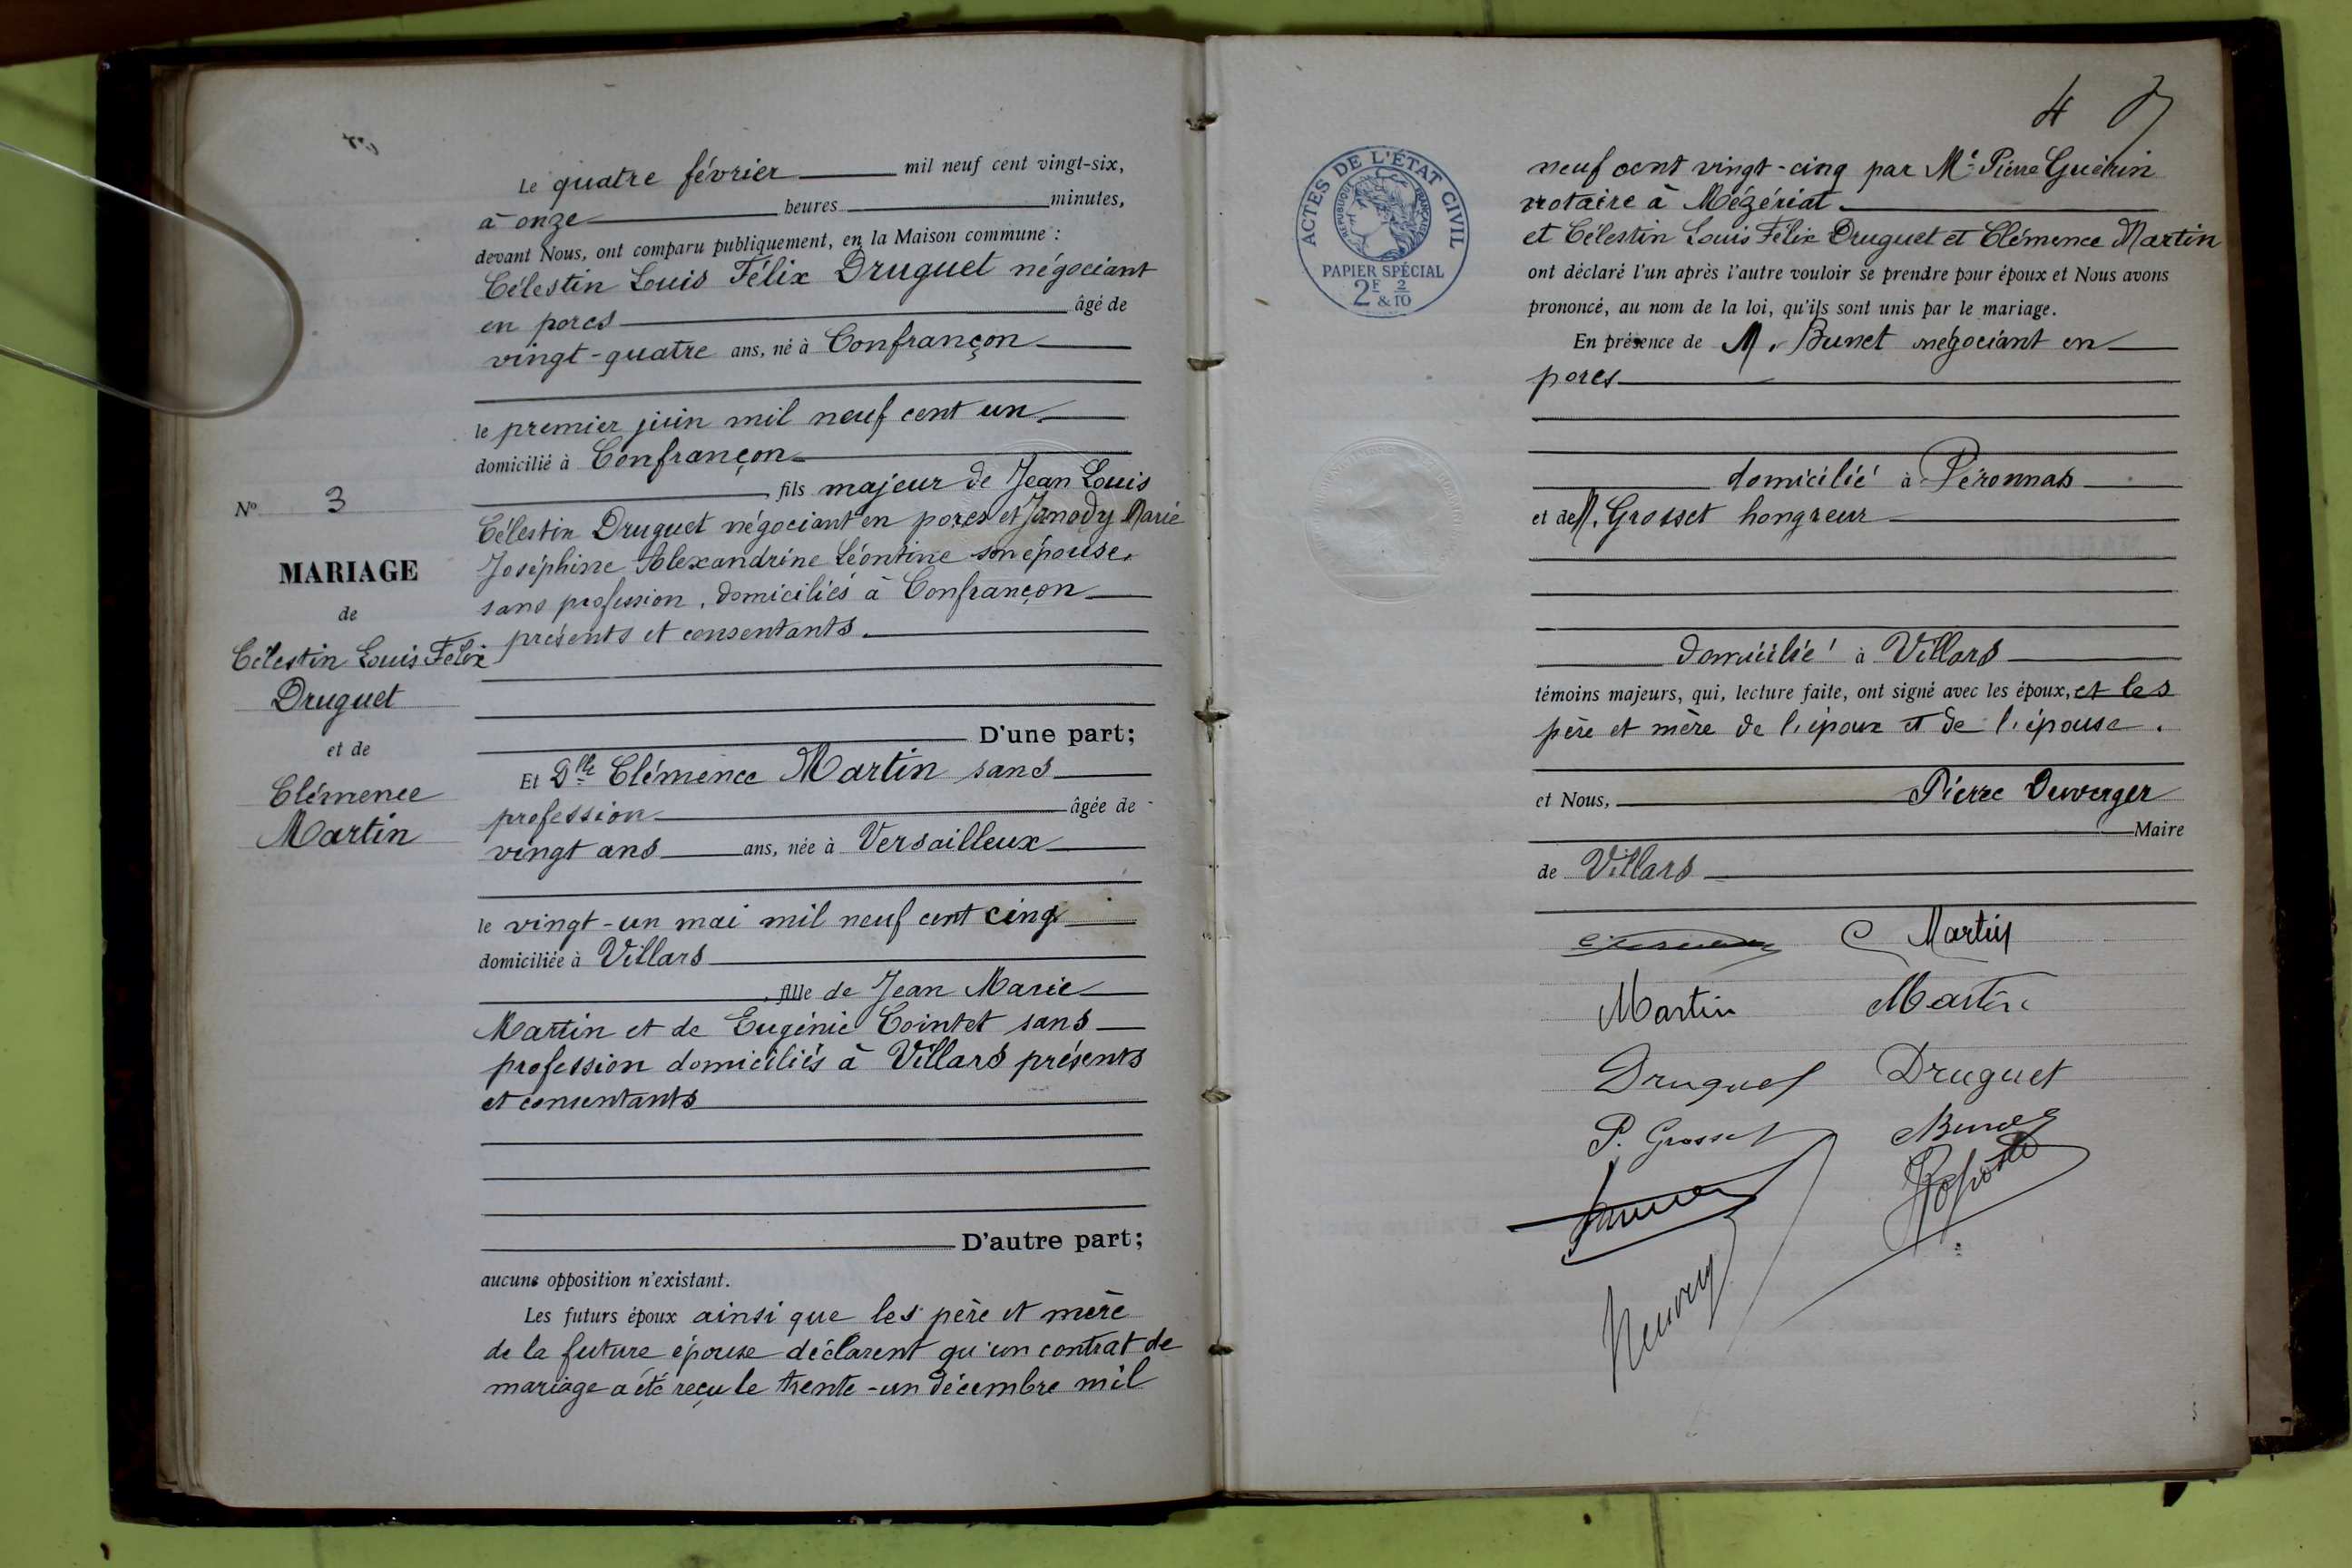 Le quatre février mil neuf cent vingt-six,
à onze heures minutes,
devant Nous, ont comparu publiquement, en la Maison commune :
Célestin Louis Félix Druguet négociant
en porcs âgé de
vingt-quatre ans, né à Confrançon
le premier juin mil neuf cent un
domicilié à Confrançon
, fils majeur de Jean Louis
Célestin Druguet négociant en porcs et Janody Marie
Joséphine Alexandrine Léontine son épouse,
sans profession, domiciliés à Confrançon
présents et consentants.
D'une part;
Et Dlle Clémence Martin sans
profession âgée de
vingt ans ans, née à Versailleux
le vingt-un mai mil neuf cent cinq
domiciliée à Villars
, fille de Jean Marie
Martin et de Eugénie Cointet sans
profession domiciliés à Villars présents
et consentants
D'autre part;
aucune opposition n'existant.
Les futurs époux ainsi que les père et mère
de la future épouse déclarent qu'un contrat de
mariage a été reçu le trente-un décembre mil
No 3
MARIAGE
de
Célestin Louis Félix
Druguet
et de
Clémence
Martin
4
ACTES DE L'ÉTAT CIVIL
RÉPUBLIQUE FRANÇAISE
PAPIER SPÉCIAL
2F & 2/10
neuf cent vingt-cinq par Me Pierre Guérin
notaire à Mézériat.
et Célestin Louis Félix Druguet et Clémence Martin
ont déclaré l'un après l'autre vouloir se prendre pour époux et Nous avons
prononcé, au nom de la loi, qu'ils sont unis par le mariage.
En présence de M. Bunet négociant en
porcs
domicilié à Péronnas
et de M. Grosset hongreur
domicilié à Villars
témoins majeurs, qui, lecture faite, ont signé avec les époux, et les
père et mère de l'époux et de l'épouse.
et Nous, Pierre Duverger
Maire
de Villars
C Martin
Martin Martin
Druguet Druguet
P. Grosset Bunet